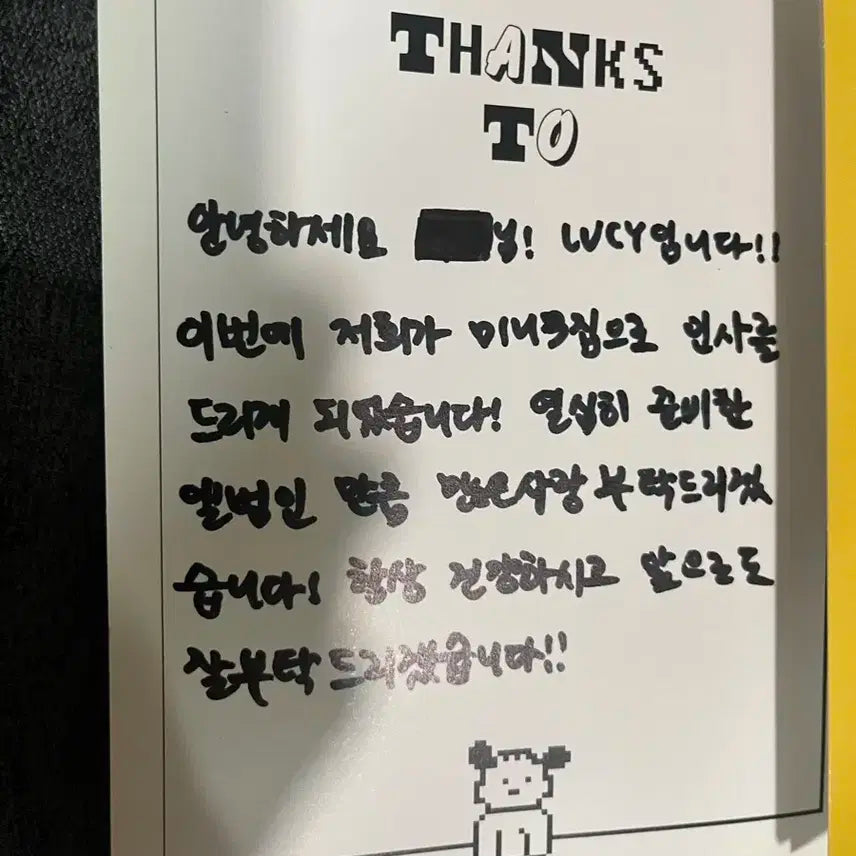 THANKS
TO
안녕하세요 님! LUCY입니다!!
이번에 저희가 미니5집으로 인사를
드리게 되었습니다! 열심히 준비한
앨범인 만큼 많은사랑 부탁드리겠
습니다! 항상 건강하시고 앞으로도
잘부탁드리겠습니다!!